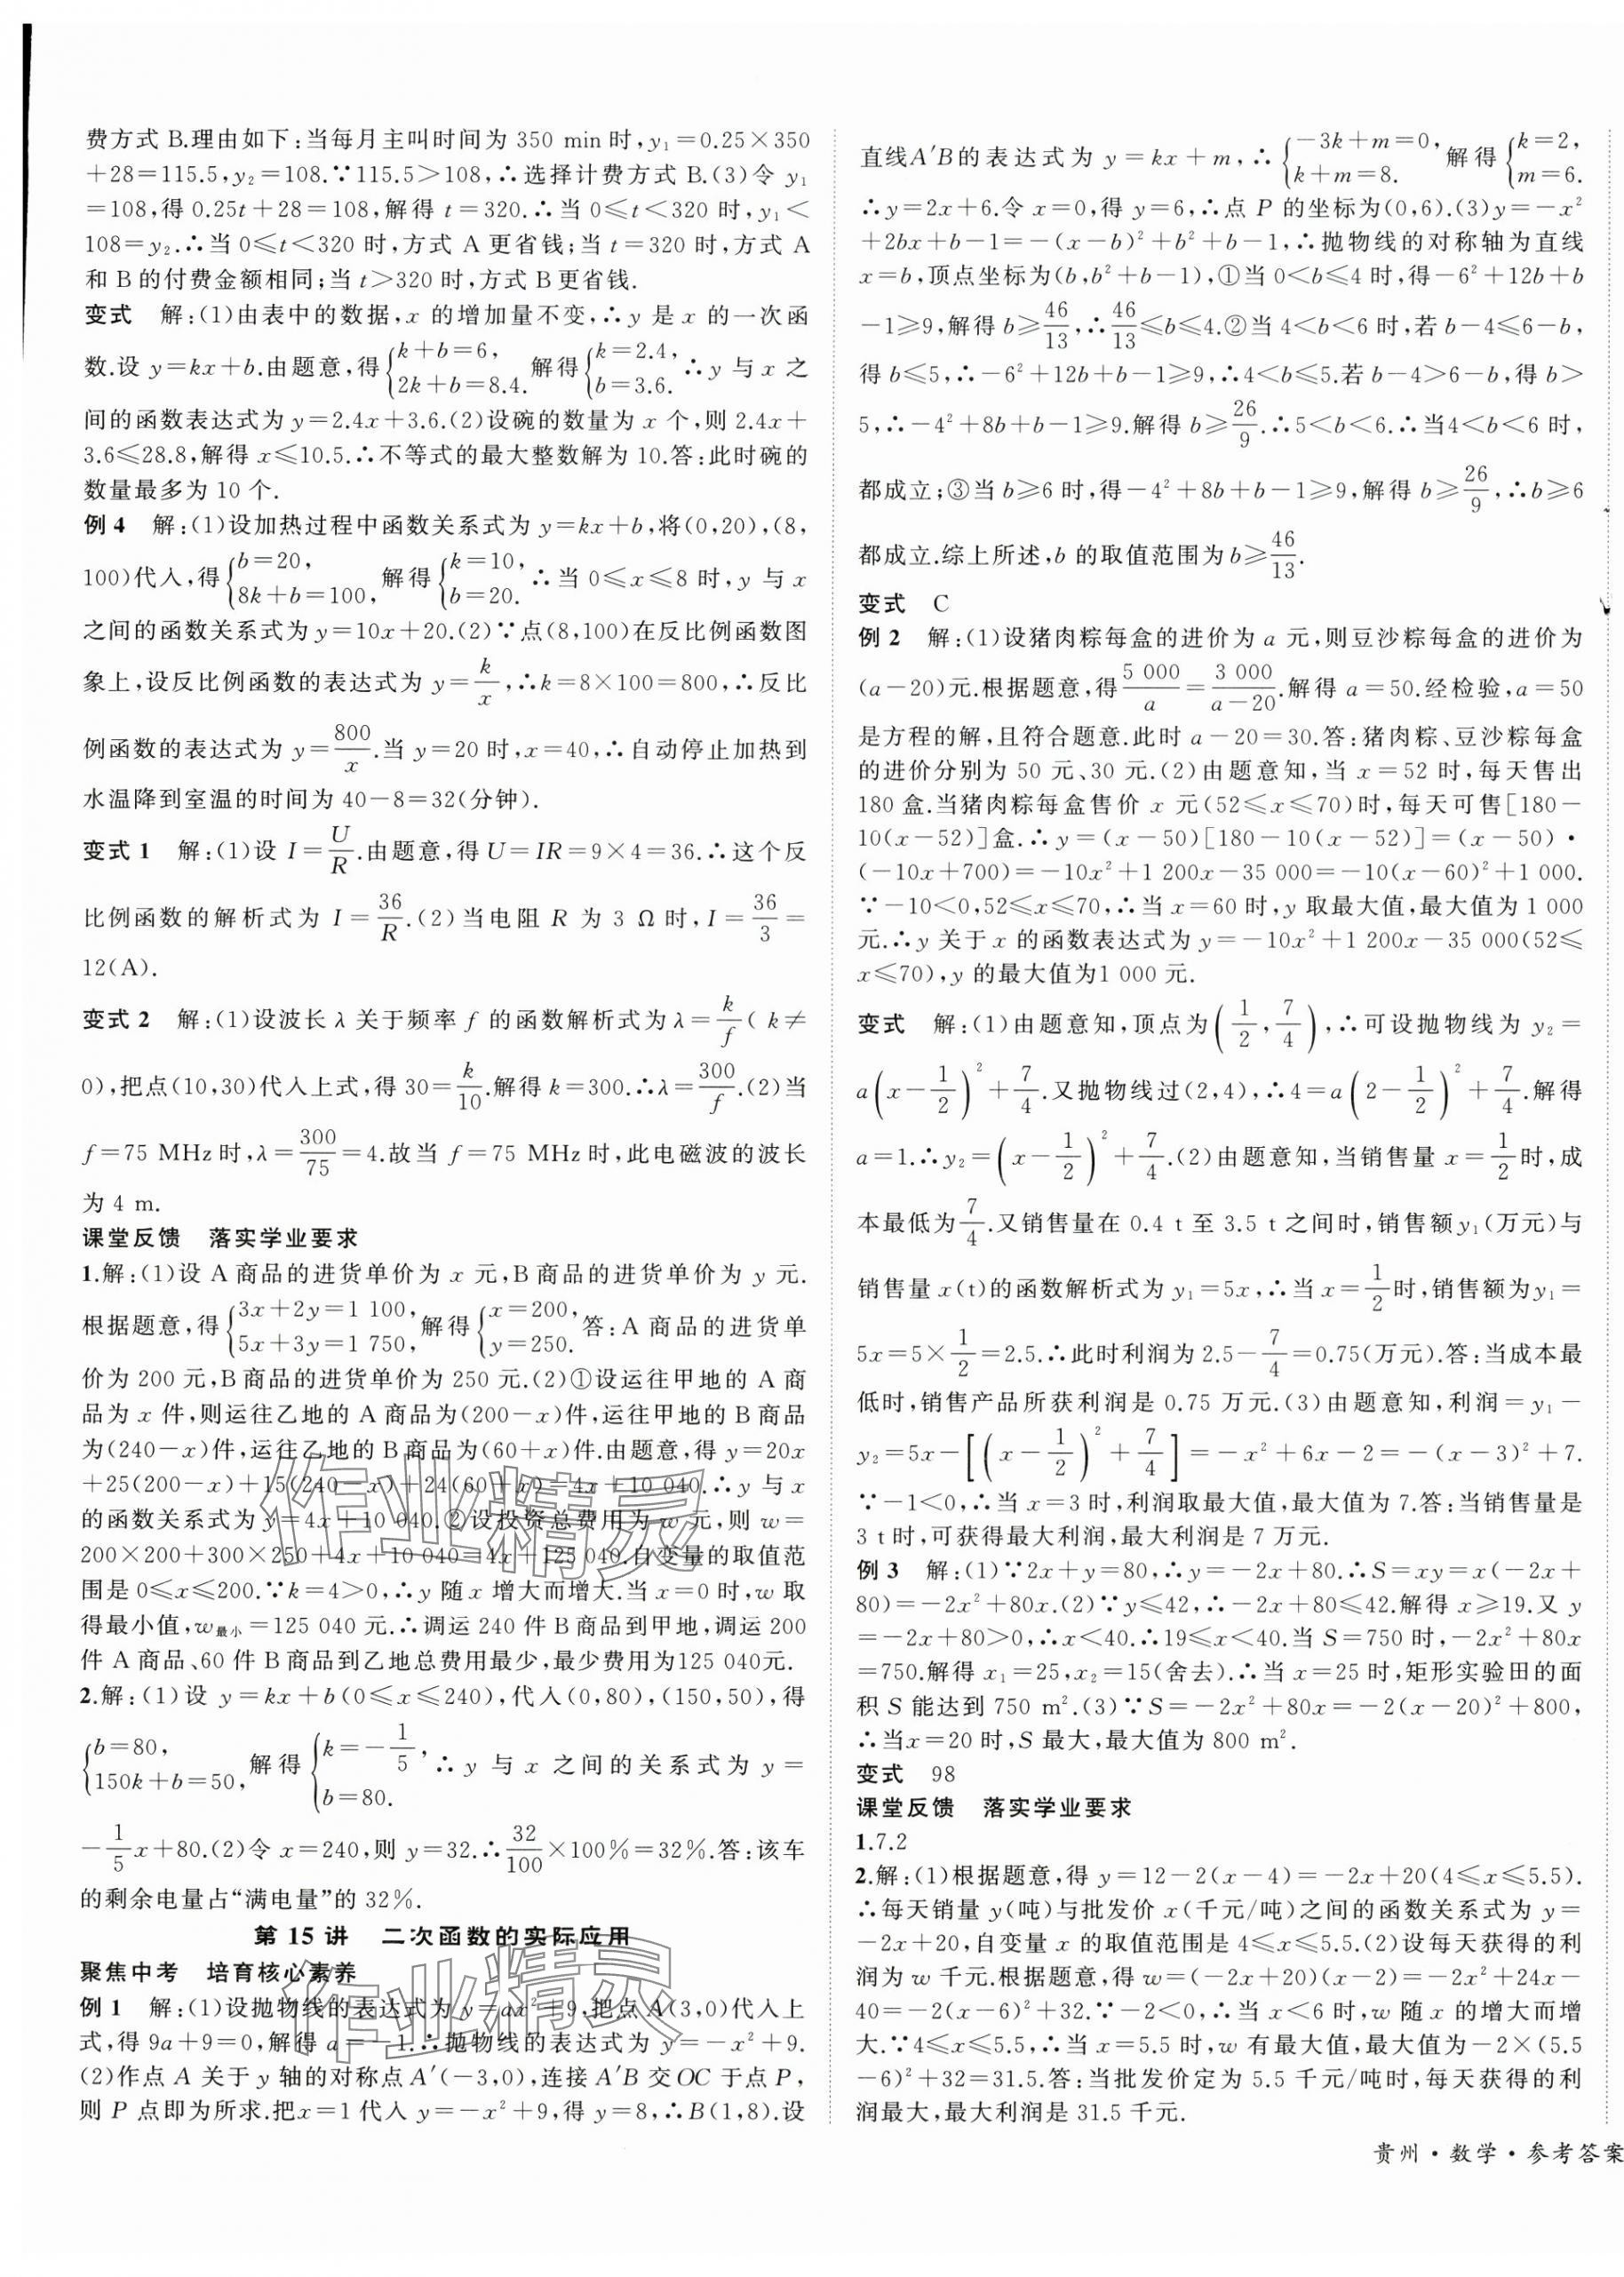 费方式 B.理由如下:当每月主叫时间为 350 min 时,y₁=0.25×350
+28=115.5,y₂=108.∵115.5>108,∴选择计费方式 B.(3)令 y₁
=108,得 0.25t+28=108,解得 t=320.∴当 0≤t<320 时,y₁<
108=y₂.∴当 0≤t<320 时,方式 A 更省钱;当 t=320 时,方式 A
和 B 的付费金额相同;当 t>320 时,方式 B 更省钱.
变式 解:(1)由表中的数据,x 的增加量不变,∴y 是 x 的一次函
数.设 y=kx+b.由题意,得{k+b=6, 2k+b=8.4. 解得{k=2.4, b=3.6. ∴y 与 x 之
间的函数表达式为 y=2.4x+3.6.(2)设碗的数量为 x 个,则 2.4x+
3.6≤28.8,解得 x≤10.5.∴不等式的最大整数解为 10.答:此时碗的
数量最多为 10 个.
例 4 解:(1)设加热过程中函数关系式为 y=kx+b,将(0,20),(8,
100)代入,得{b=20, 8k+b=100, 解得{k=10, b=20. ∴当 0≤x≤8 时,y 与 x
之间的函数关系式为 y=10x+20.(2)∵点(8,100)在反比例函数图
象上,设反比例函数的表达式为 y=k/x,∴k=8×100=800,∴反比
例函数的表达式为 y=800/x.当 y=20 时,x=40,∴自动停止加热到
水温降到室温的时间为 40-8=32(分钟).
变式 1 解:(1)设 I=U/R.由题意,得 U=IR=9×4=36.∴这个反
比例函数的解析式为 I=36/R.(2)当电阻 R 为 3 Ω 时,I=36/3=
12(A).
变式 2 解:(1)设波长 λ 关于频率 f 的函数解析式为 λ=k/f(k≠
0),把点(10,30)代入上式,得 30=k/10.解得 k=300.∴λ=300/f.(2)当
f=75 MHz 时,λ=300/75=4.故当 f=75 MHz 时,此电磁波的波长
为 4 m.
课堂反馈 落实学业要求
1.解:(1)设 A 商品的进货单价为 x 元,B 商品的进货单价为 y 元.
根据题意,得{3x+2y=1 100, 5x+3y=1 750, 解得{x=200, y=250. 答:A 商品的进货单
价为 200 元,B 商品的进货单价为 250 元.(2)①设运往甲地的 A 商
品为 x 件,则运往乙地的 A 商品为(200-x)件,运往甲地的 B 商品
为(240-x)件,运往乙地的 B 商品为(60+x)件.由题意,得 y=20x
+25(200-x)+15(240-x)+24(60+x)=4x+10 040.∴y 与 x
的函数关系式为 y=4x+10 040.②设投资总费用为 w 元,则 w=
200×200+300×250+4x+10 040=4x+125 040.自变量的取值范
围是 0≤x≤200.∵k=4>0,∴y 随 x 增大而增大.当 x=0 时,w 取
得最小值,w最小=125 040 元.∴调运 240 件 B 商品到甲地,调运 200
件 A 商品、60 件 B 商品到乙地总费用最少,最少费用为125 040元.
2.解:(1)设 y=kx+b(0≤x≤240),代入(0,80),(150,50),得
{b=80, 150k+b=50, 解得{k=-1/5, b=80. ∴y 与 x 之间的关系式为 y=
-1/5x+80.(2)令 x=240,则 y=32.∴32/100×100%=32%.答:该车
的剩余电量占“满电量”的 32%.
第 15 讲 二次函数的实际应用
聚焦中考 培育核心素养
例 1 解:(1)设抛物线的表达式为 y=ax²+9,把点 A(3,0)代入上
式,得 9a+9=0,解得 a=-1.∴抛物线的表达式为 y=-x²+9.
(2)作点 A 关于 y 轴的对称点 A′(-3,0),连接 A′B 交 OC 于点 P,
则 P 点即为所求.把x=1 代入 y=-x²+9,得 y=8,∴B(1,8).设
直线A′B的表达式为 y=kx+m,∴{-3k+m=0, k+m=8. 解得{k=2, m=6.
∴y=2x+6.令 x=0,得 y=6,∴点 P 的坐标为(0,6).(3)y=-x²
+2bx+b-1=-(x-b)²+b²+b-1,∴抛物线的对称轴为直线
x=b,顶点坐标为(b,b²+b-1),①当 0<b≤4 时,得-6²+12b+b
-1≥9,解得 b≥46/13,∴46/13≤b≤4.②当 4<b<6 时,若 b-4≤6-b,
得 b≤5,∴-6²+12b+b-1≥9,∴4<b≤5.若 b-4>6-b,得 b>
5,∴-4²+8b+b-1≥9.解得 b≥26/9.∴5<b<6.∴当4<b<6 时,
都成立;③当 b≥6 时,得-4²+8b+b-1≥9,解得 b≥26/9,∴b≥6
都成立.综上所述,b 的取值范围为 b≥46/13.
变式 C
例 2 解:(1)设猪肉粽每盒的进价为 a 元,则豆沙粽每盒的进价为
(a-20)元.根据题意,得5 000/a=3 000/(a-20).解得 a=50.经检验,a=50
是方程的解,且符合题意.此时 a-20=30.答:猪肉粽、豆沙粽每盒
的进价分别为 50 元、30 元.(2)由题意知,当 x=52 时,每天售出
180 盒.当猪肉粽每盒售价 x 元(52≤x≤70)时,每天可售[180-
10(x-52)]盒.∴y=(x-50)[180-10(x-52)]=(x-50)·
(-10x+700)=-10x²+1 200x-35 000=-10(x-60)²+1 000.
∵-10<0,52≤x≤70,∴当 x=60 时,y 取最大值,最大值为 1 000
元.∴y 关于 x 的函数表达式为 y=-10x²+1 200x-35 000(52≤
x≤70),y 的最大值为1 000 元.
变式 解:(1)由题意知,顶点为(1/2,7/4),∴可设抛物线为 y₂=
a(x-1/2)²+7/4.又抛物线过(2,4),∴4=a(2-1/2)²+7/4.解得
a=1.∴y₂=(x-1/2)²+7/4.(2)由题意知,当销售量 x=1/2时,成
本最低为7/4.又销售量在 0.4 t 至 3.5 t 之间时,销售额y₁(万元)与
销售量 x(t)的函数解析式为 y₁=5x,∴当 x=1/2时,销售额为y₁=
5x=5×1/2=2.5.∴此时利润为 2.5-7/4=0.75(万元).答:当成本最
低时,销售产品所获利润是 0.75 万元.(3)由题意知,利润=y₁-
y₂=5x-[(x-1/2)²+7/4]=-x²+6x-2=-(x-3)²+7.
∵-1<0,∴当 x=3 时,利润取最大值,最大值为 7.答:当销售量是
3 t 时,可获得最大利润,最大利润是 7 万元.
例 3 解:(1)∵2x+y=80,∴y=-2x+80.∴S=xy=x(-2x+
80)=-2x²+80x.(2)∵y≤42,∴-2x+80≤42.解得 x≥19.又 y
=-2x+80>0,∴x<40.∴19≤x<40.当 S=750 时,-2x²+80x
=750.解得 x₁=25,x₂=15(舍去).∴当 x=25 时,矩形实验田的面
积 S 能达到 750 m².(3)∵S=-2x²+80x=-2(x-20)²+800,
∴当x=20 时,S 最大,最大值为 800 m².
变式 98
课堂反馈 落实学业要求
1.7.2
2.解:(1)根据题意,得 y=12-2(x-4)=-2x+20(4≤x≤5.5).
∴每天销量 y(吨)与批发价 x(千元/吨)之间的函数关系式为 y=
-2x+20,自变量 x 的取值范围是 4≤x≤5.5.(2)设每天获得的利
润为 w 千元.根据题意,得 w=(-2x+20)(x-2)=-2x²+24x-
40=-2(x-6)²+32.∵-2<0,∴当 x<6 时,w 随 x 的增大而增
大.∵4≤x≤5.5,∴当 x=5.5 时,w 有最大值,最大值为-2×(5.5
-6)²+32=31.5.答:当批发价定为 5.5 千元/吨时,每天获得的利
润最大,最大利润是 31.5 千元.
贵州·数学·参考答案
作业精灵
作业精灵